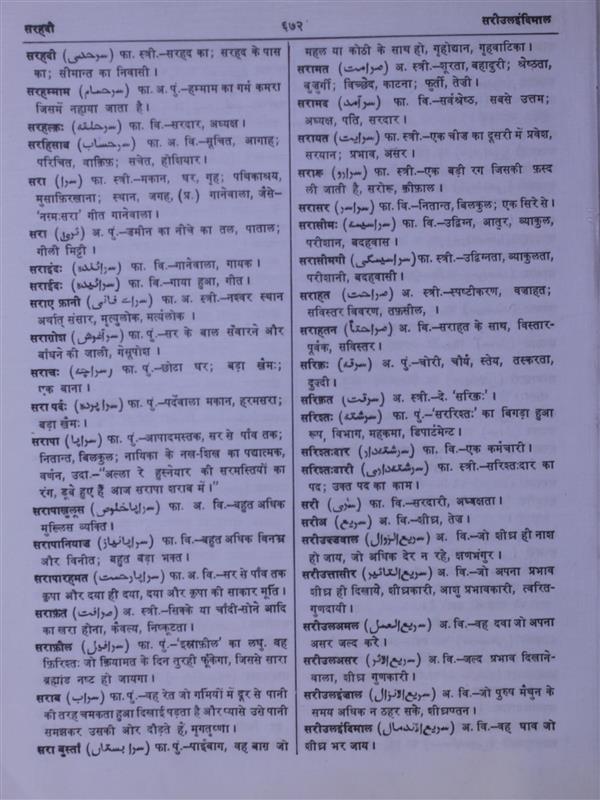 सरहदी
६७२
सरीउलइंदिमाल
सरहदी (سرحدی) फा. स्त्री.-सरहद का; सरहद के पास
का; सीमान्त का निवासी।
सरहम्माम (سرحمام) फा. अ. पुं.-हम्माम का गर्म कमरा
जिसमें नहाया जाता है।
सरहल्क़ः (سرحلقہ) फा. वि.-सरदार, अध्यक्ष।
सरहिसाब (سرحساب) फा. अ. वि.-सूचित, आगाह;
परिचित, वाक़िफ़; सचेत, होशियार।
सरा (سرا) फा. स्त्री.-मकान, घर, गृह; पथिकाश्रय,
मुसाफ़िरखाना; स्थान, जगह, (प्र.) गानेवाला, जैसे-
'नरमःसरा' गीत गानेवाला।
सरा (ثری) अ. पुं.-ज़मीन का नीचे का तल, पाताल;
गीली मिट्टी।
सराइंदः (سرائندہ) फा. वि.-गानेवाला, गायक।
सराईदः (سرائیدہ) फा. वि.-गाया हुआ, गीत।
सराए फ़ानी (سرائے فانی) फा. अ. स्त्री.-नश्वर स्थान
अर्थात् संसार, मृत्युलोक, मर्त्यलोक।
सराग़ोश (سراغوش) फा. पुं.-सर के बाल सँवारने और
बाँधने की जाली, गेसूपोश।
सराचः (سراچہ) फा. पुं.-छोटा घर; बड़ा ख़ेमः;
एक बाना।
सरा पर्दः (سراپردہ) फा. पुं.-पर्देवाला मकान, हरमसरा;
बड़ा ख़ेमः।
सरापा (سراپا) फा. पुं.-आपादमस्तक, सर से पाँव तक;
नितान्त, बिलकुल; नायिका के नख-शिख का पद्यात्मक
वर्णन, उदा.-"अल्ला रे हुस्नेयार की सरमस्तियों का
रंग, डूबे हुए हैं आज सरापा शराब में।"
सरापाख़ुलूस (سراپاخلوص) फा. अ. वि.-बहुत अधिक
मुख्लिस व्यक्ति।
सरापानियाज़ (سراپانیاز) फा. वि.-बहुत अधिक विनम्र
और विनीत; बहुत बड़ा भक्त।
सरापारहमत (سراپارحمت) फा. अ. वि.-सर से पाँव तक
कृपा और दया ही दया, दया और कृपा की साकार मूर्ति।
सराफ़त (صرافت) अ. स्त्री.-सिक्के या चाँदी-सोने आदि
का खरा होना, कैवल्य, निष्कूटता।
सराफ़ील (سرافیل) फा. पुं.-'इस्राफ़ील' का लघु. वह
फ़िरिश्तः जो क़ियामत के दिन तुरही फूँकेगा, जिससे सारा
ब्रह्मांड नष्ट हो जायगा।
सराब (سراب) फा. पुं.-वह रेत जो गर्मियों में दूर से पानी
की तरह चमकता हुआ दिखाई पड़ता है और प्यासे उसे पानी
समझकर उसकी ओर दौड़ते हैं, मृगतृष्णा।
सरा बुस्ताँ (سرابستاں) फा. पुं.-पाईंबाग़, वह बाग़ जो
महल या कोठी के साथ हो, गृहोद्यान, गृहवाटिका।
सरामत (صرامت) अ. स्त्री.-शूरता, बहादुरी; श्रेष्ठता,
बुज़ुर्गी; विच्छेद, काटना; फुर्ती, तेज़ी।
सरामद (سرآمد) फा. वि.-सर्वश्रेष्ठ, सबसे उत्तम;
अध्यक्ष, पति, सरदार।
सरायत (سرایت) फा. स्त्री.-एक चीज़ का दूसरी में प्रवेश,
सरयान; प्रभाव, असर।
सरारू (سرارو) फा. स्त्री.-एक बड़ी रग जिसकी फ़स्द
ली जाती है, सरोरू, क़ीफ़ाल।
सरासर (سراسر) फा. वि.-नितान्त, बिलकुल; एक सिरे से।
सरासीमः (سراسیمہ) फा. वि.-उद्विग्न, आतुर, व्याकुल,
परीशान, बदहवास।
सरासीमगी (سراسیمگی) फा. स्त्री.-उद्विग्नता, व्याकुलता,
परीशानी, बदहवासी।
सराहत (صراحت) अ. स्त्री.-स्पष्टीकरण, वज़ाहत;
सविस्तर विवरण, तफ़सील,।
सराहतन (صراحتاً) अ. वि.-सराहत के साथ, विस्तार-
पूर्वक, सविस्तर।
सरिक़ः (سرقہ) अ. पुं.-चोरी, चौर्य, स्तेय, तस्करता,
दुज़्दी।
सरिक़त (سرقت) अ. स्त्री.-दे. 'सरिक़ः'।
सरिश्तः (سرشتہ) फा. पुं.-'सररिश्तः' का बिगड़ा हुआ
रूप, विभाग, महकमा, डिपार्टमेन्ट।
सरिश्तःदार (سرشتہدار) फा. वि.-एक कर्मचारी।
सरिश्तःदारी (سرشتہداری) फा. स्त्री.-सरिश्तःदार का
पद; उक्त पद का काम।
सरी (سری) फा. वि.-सरदारी, अध्यक्षता।
सरीअ (سریع) अ. वि.-शीघ्र, तेज़।
सरीउज़्ज़वाल (سریع الزوال) अ. वि.-जो शीघ्र ही नाश
हो जाय, जो अधिक देर न रहे, क्षणभंगुर।
सरीउत्तासीर (سریع التاثیر) अ. वि.-जो अपना प्रभाव
शीघ्र ही दिखाये, शीघ्रकारी, आशु प्रभावकारी, त्वरित-
गुणदायी।
सरीउलअमल (سریع العمل) अ. वि.-वह दवा जो अपना
असर जल्द करे।
सरीउलअसर (سریع الاثر) अ. वि.-जल्द प्रभाव दिखाने-
वाला, शीघ्र गुणकारी।
सरीउलइंज़ाल (سریع الانزال) अ. वि.-जो पुरुष मैथुन के
समय अधिक न ठहर सके, शीघ्रपतन।
सरीउलइंदिमाल (سریع الاندمال) अ. वि.-वह घाव जो
शीघ्र भर जाय।